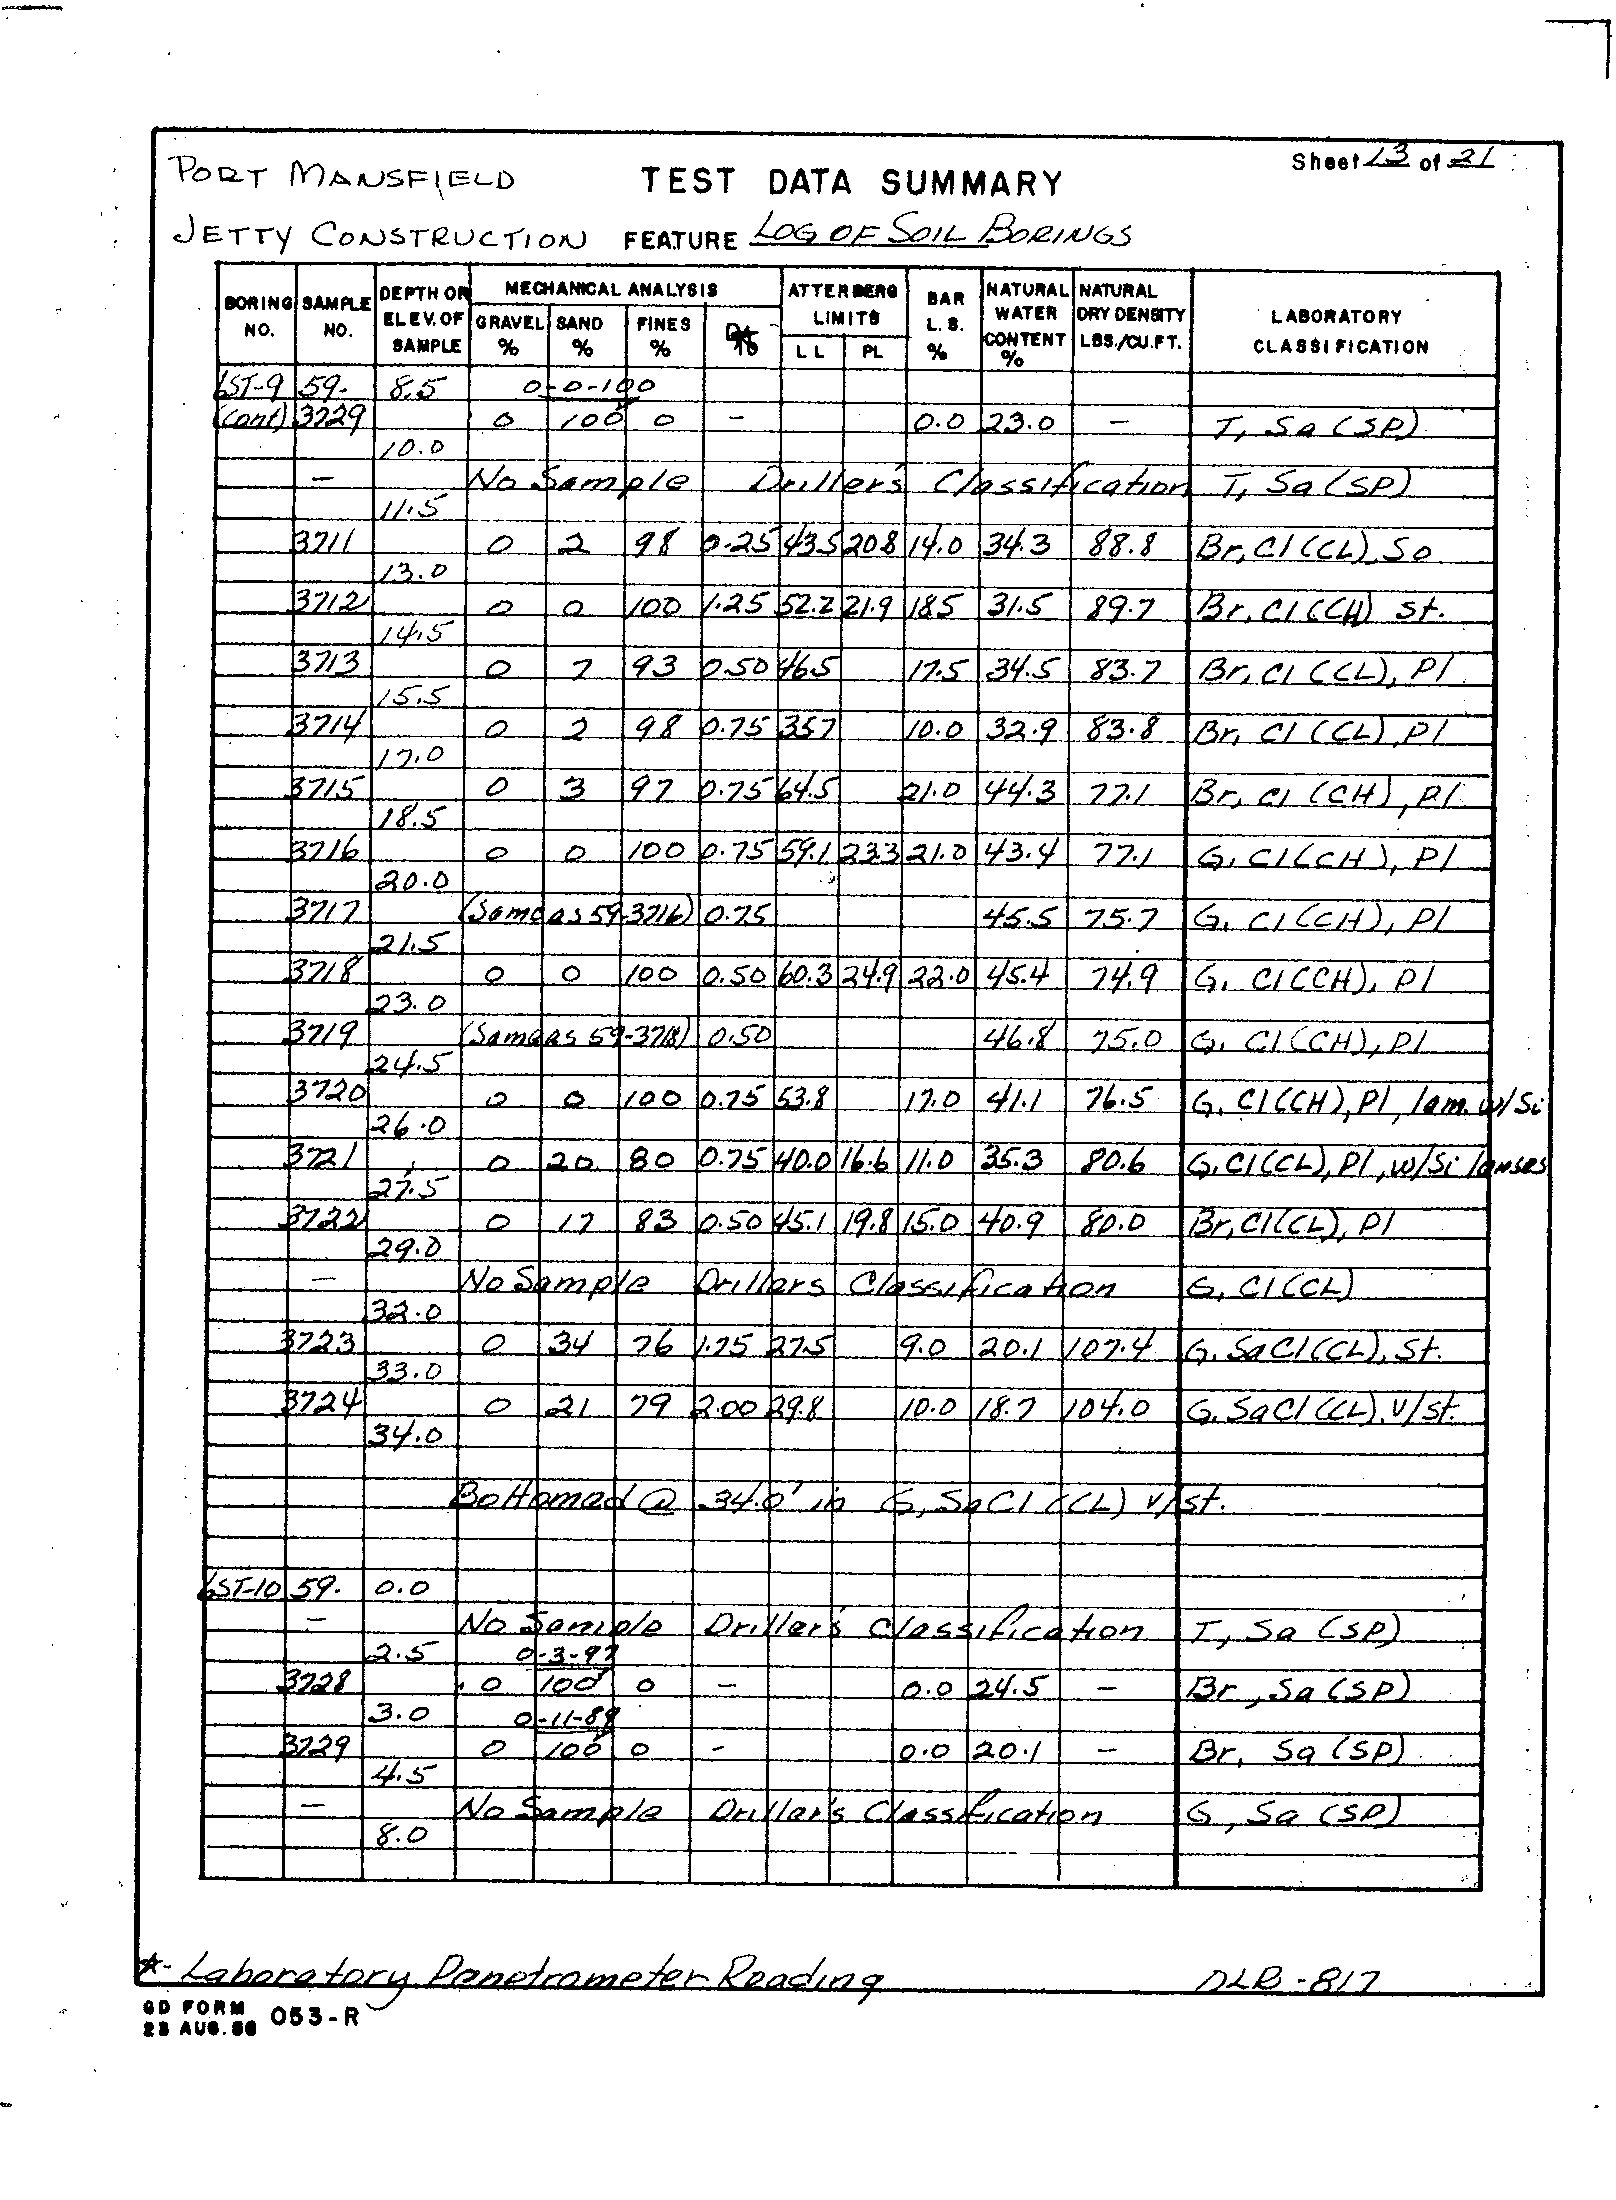 Sheet 13 of 21
PORT MANSFIELD TEST DATA SUMMARY
JETTY CONSTRUCTION FEATURE LOG OF SOIL BORINGS
BORING NO. SAMPLE NO. DEPTH OR ELEV. OF SAMPLE MECHANICAL ANALYSIS GRAVEL % SAND % FINES % ATTERBERG LIMITS LL PL BAR L.S. % NATURAL WATER CONTENT % NATURAL DRY DENSITY LBS./CU.FT. LABORATORY CLASSIFICATION
6ST-9 59- 8.5 0-0-100
(cont) 3729 0 100 0 - 0.0 23.0 - T, Sa (SP)
10.0
- No Sample Driller's Classification T, Sa (SP)
11.5
3711 0 2 98 0.25 43.5 20.8 14.0 34.3 88.8 Br, Cl (CL), So
13.0
3712 0 0 100 1.25 52.2 21.9 18.5 31.5 89.7 Br, Cl (CH) St.
14.5
3713 0 7 93 0.50 46.5 17.5 34.5 83.7 Br, Cl (CL), Pl
15.5
3714 0 2 98 0.75 35.7 10.0 32.9 83.8 Br, Cl (CL), Pl
17.0
3715 0 3 97 0.75 64.5 21.0 44.3 77.1 Br, Cl (CH), Pl
18.5
3716 0 0 100 0.75 59.1 23.3 21.0 43.4 77.1 G, Cl (CH), Pl
20.0
3717 (Same as 59-3716) 0.75 45.5 75.7 G, Cl (CH), Pl
21.5
3718 0 0 100 0.50 60.3 24.9 22.0 45.4 74.9 G, Cl (CH), Pl
23.0
3719 (Same as 59-3718) 0.50 46.8 75.0 G, Cl (CH), Pl
24.5
3720 0 0 100 0.75 53.8 17.0 41.1 76.5 G, Cl (CH), Pl, lam. w/Si
26.0
3721 0 20 80 0.75 40.0 16.6 11.0 35.3 80.6 G, Cl (CL), Pl, w/Si lenses
27.5
3722 0 17 83 0.50 45.1 19.8 15.0 40.9 80.0 Br, Cl (CL), Pl
29.0
- No Sample Drillers Classification G, Cl (CL)
32.0
3723 0 34 76 1.75 27.5 9.0 20.1 107.4 G, SaCl (CL), St.
33.0
3724 0 21 79 2.00 29.8 10.0 18.7 104.0 G, SaCl (CL), v/st.
34.0
Bottomed @ 34.0' in G, SaCl (CL) v/st.
6ST-10 59- 0.0
- No Sample Driller's Classification T, Sa (SP)
2.5 0-3-97
3728 0 100 0 - 0.0 24.5 - Br, Sa (SP)
3.0 0-11-89
3729 0 100 0 - 0.0 20.1 - Br, Sa (SP)
4.5
- No Sample Driller's Classification G, Sa (SP)
8.0
*- Laboratory Penetrometer Reading DLR-817
GD FORM 053-R
23 AUG. 56